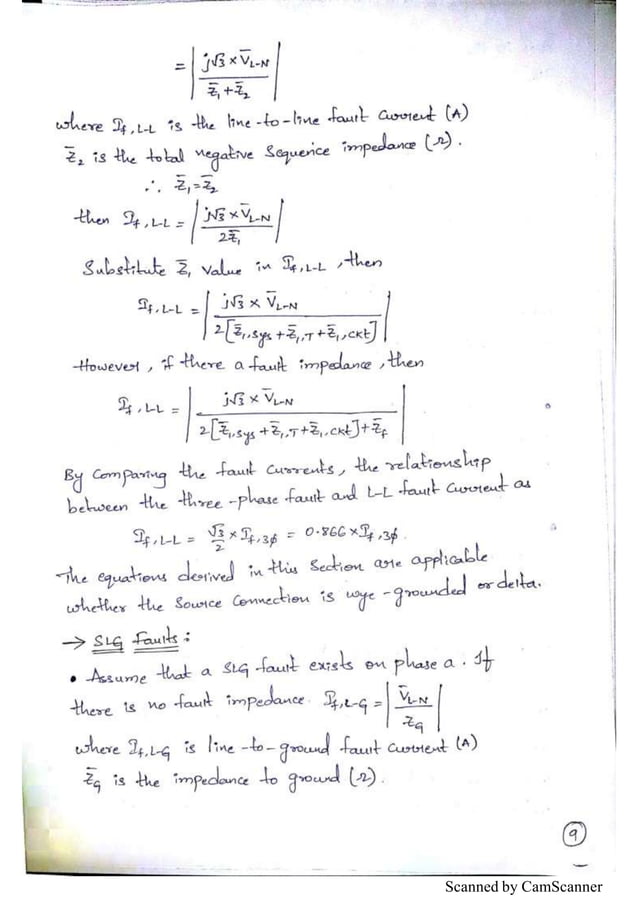 = | j√3 × V̄L-N / Z̄1 + Z̄2 |
where If,L-L is the line-to-line fault current (A)
Z̄2 is the total negative sequence impedance (Ω).
∴ Z̄1 = Z̄2
then If,L-L = | j√3 × V̄L-N / 2Z̄1 |
Substitute Z̄1 value in If,L-L, then
If,L-L = | j√3 × V̄L-N / 2[Z̄1,sys + Z̄1,T + Z̄1,ckt] |
However, if there a fault impedance, then
If,L-L = | j√3 × V̄L-N / 2[Z̄1,sys + Z̄1,T + Z̄1,ckt] + Z̄f |
By Comparing the fault currents, the relationship
between the three-phase fault and L-L fault current as
If,L-L = √3/2 × If,3φ = 0.866 × If,3φ.
The equations derived in this Section are applicable
whether the Source Connection is wye-grounded or delta.
→ SLG Faults :
• Assume that a SLG fault exists on phase a. If
there is no fault impedance. If,L-G = | V̄L-N / ZG |
where If,L-G is line-to-ground fault current (A)
Z̄G is the impedance to ground (Ω).
9
Scanned by CamScanner